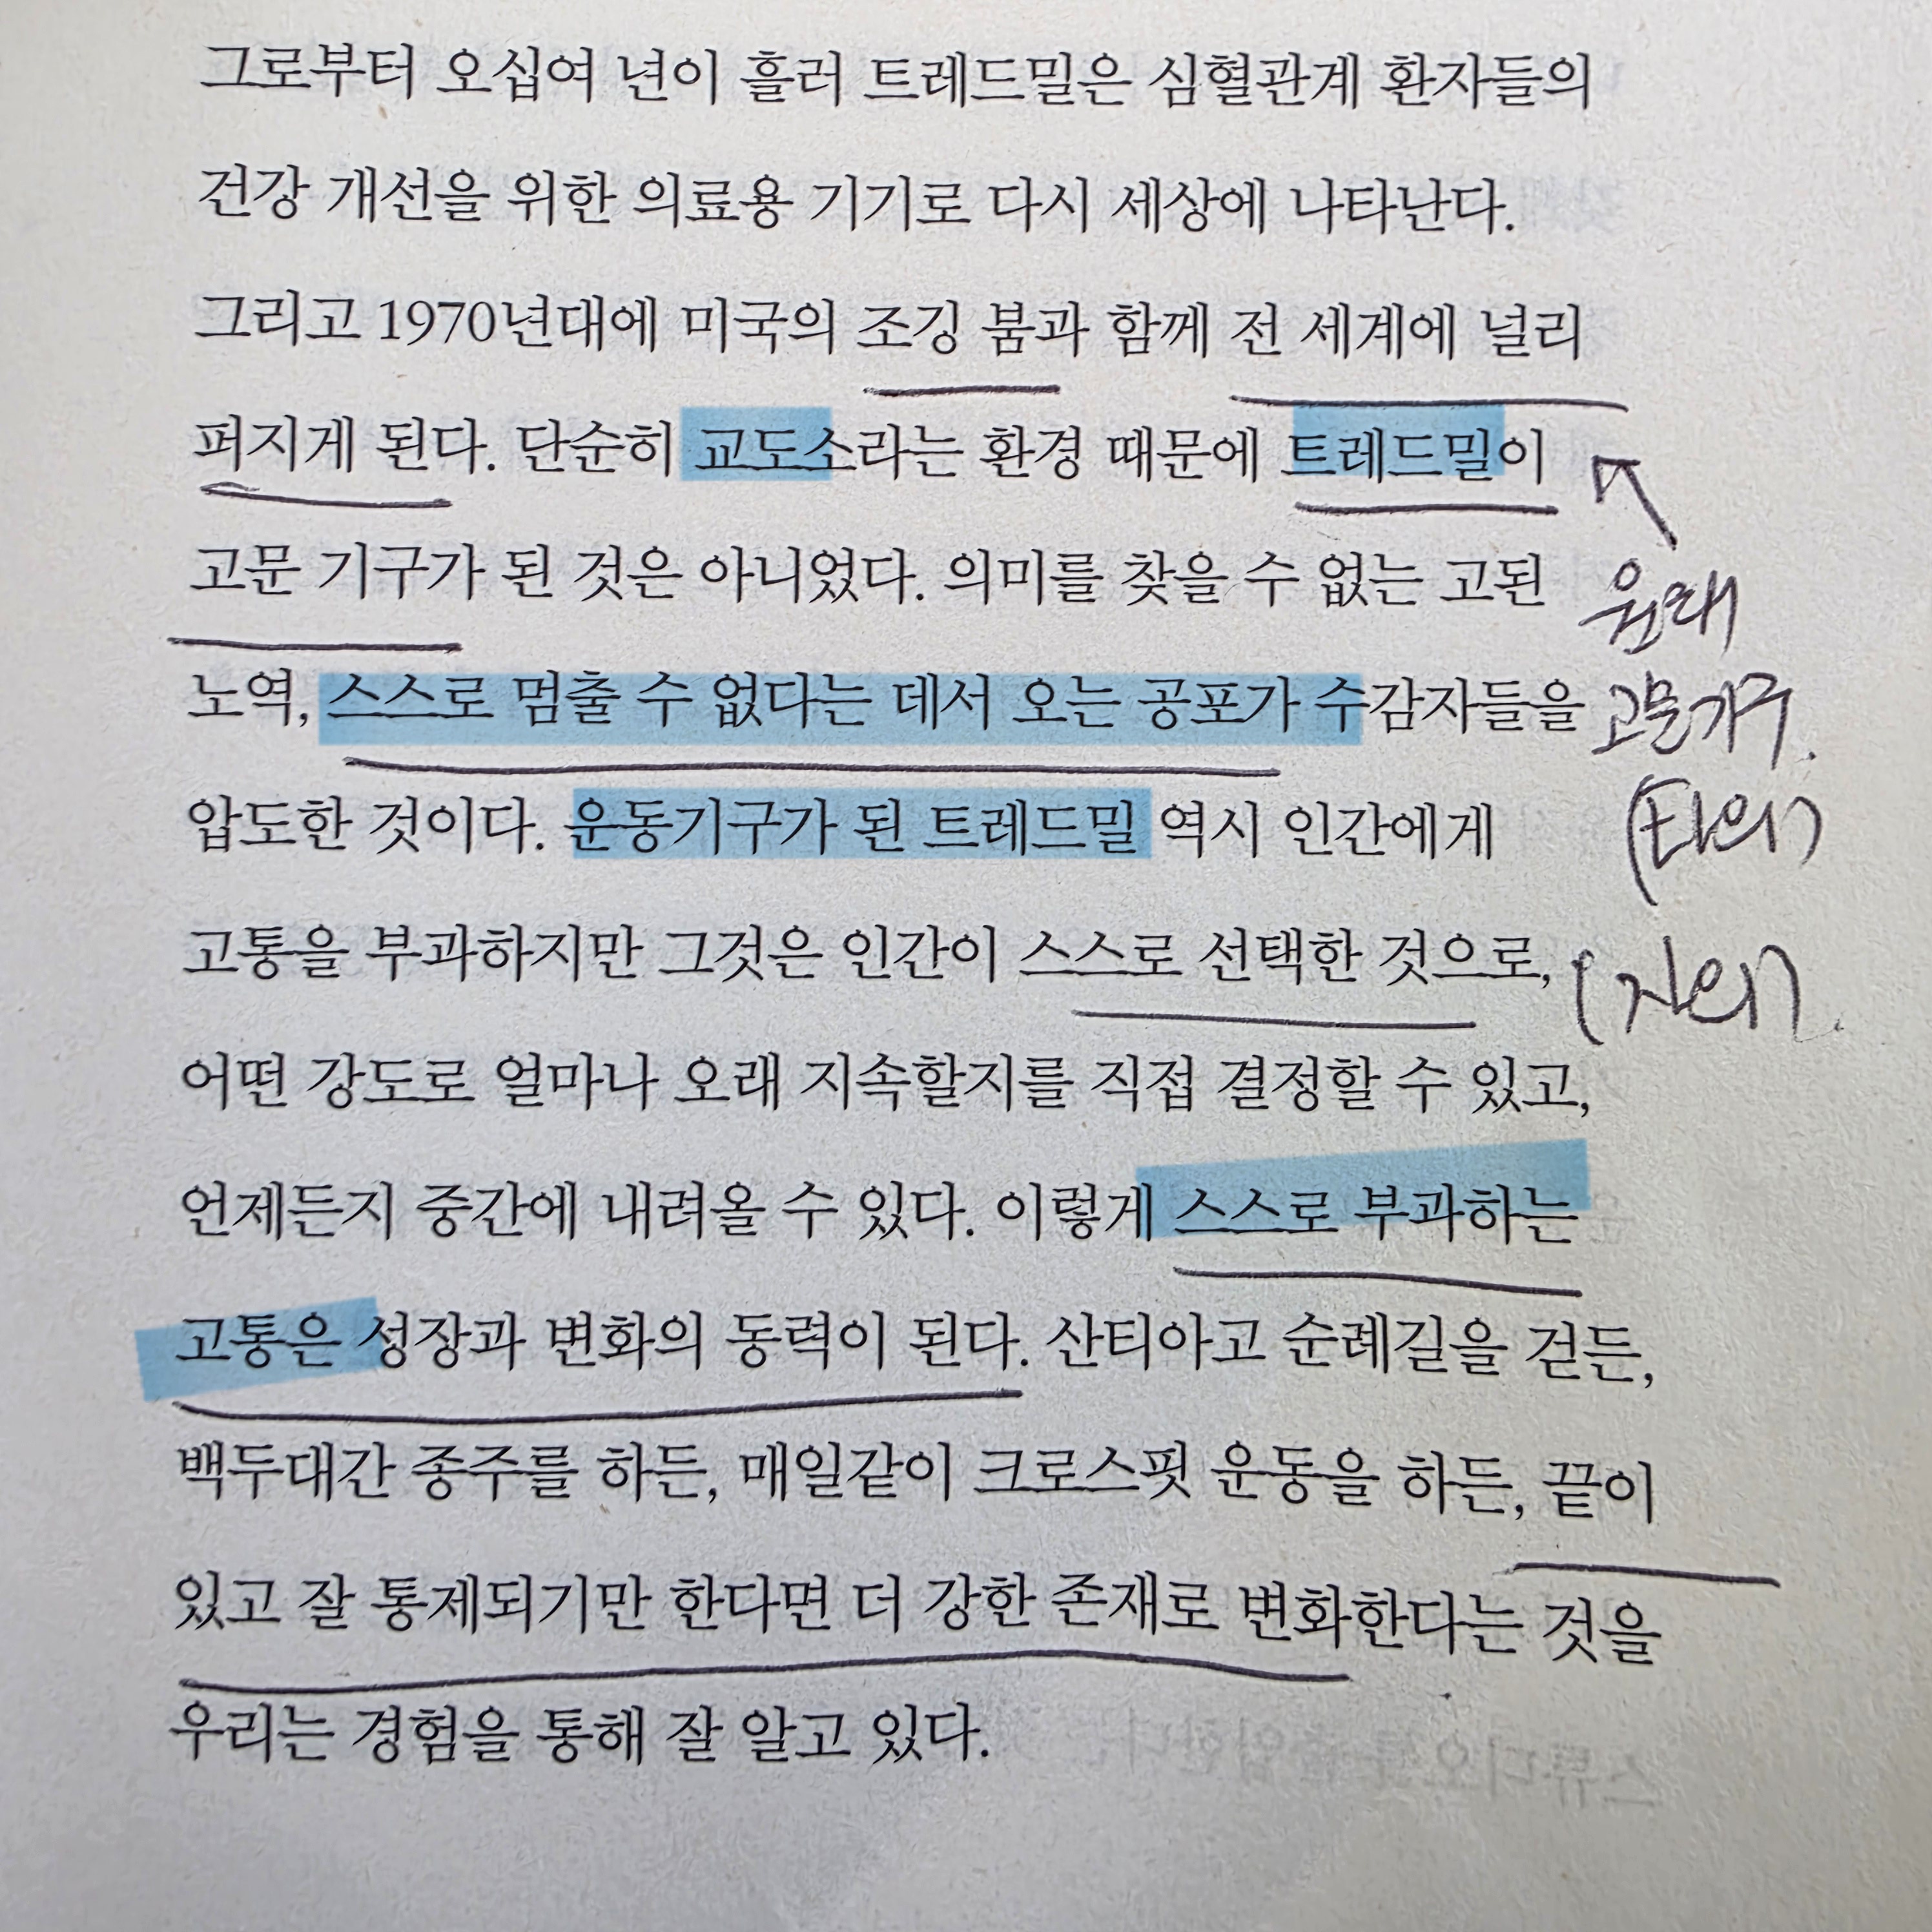 그로부터 오십여 년이 흘러 트레드밀은 심혈관계 환자들의
건강 개선을 위한 의료용 기기로 다시 세상에 나타난다.
그리고 1970년대에 미국의 조깅 붐과 함께 전 세계에 널리
퍼지게 된다. 단순히 교도소라는 환경 때문에 트레드밀이
고문 기구가 된 것은 아니었다. 의미를 찾을 수 없는 고된
원래
노역, 스스로 멈출 수 없다는 데서 오는 공포가 수감자들을
고문기구.
압도한 것이다. 운동기구가 된 트레드밀 역시 인간에게
(타의)
고통을 부과하지만 그것은 인간이 스스로 선택한 것으로,
(자의)
어떤 강도로 얼마나 오래 지속할지를 직접 결정할 수 있고,
언제든지 중간에 내려올 수 있다. 이렇게 스스로 부과하는
고통은 성장과 변화의 동력이 된다. 산티아고 순례길을 걷든,
백두대간 종주를 하든, 매일같이 크로스핏 운동을 하든, 끝이
있고 잘 통제되기만 한다면 더 강한 존재로 변화한다는 것을
우리는 경험을 통해 잘 알고 있다.